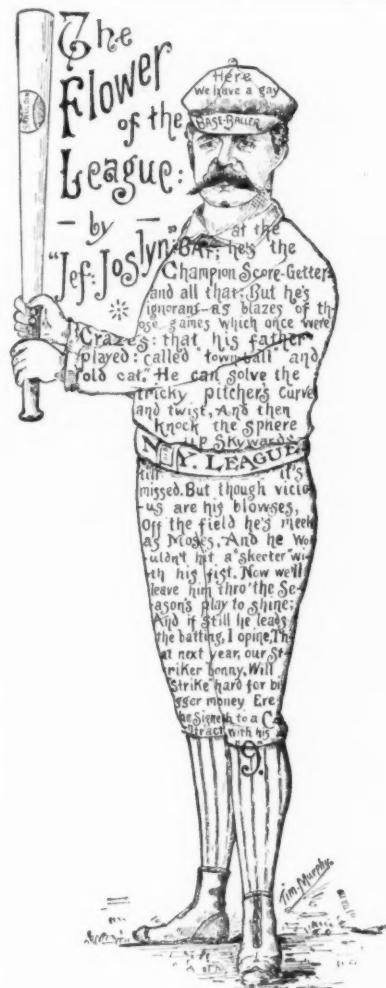 The
Flower
of the
League:
— by —
"Jef: Joslyn"
SPALDING
Here
we have a gay
BASE-BALLER
at the
BAT; he's the
Champion Score-Getter
and all that; But he's
ignorant—as blazes of th-
ose games which once were
Crazes: that his father
played: called "town-ball" and
"old cat." He can solve the
tricky pitcher's curve
and twist, And then
knock the sphere
up Skywards
N.Y. LEAGUE.
till it's
missed. But though vicio-
us are his blowses,
Off the field he's meek
as Moses, And he wo-
uldn't hit a "skeeter" wi-
th his fist. Now we'll
leave him thro' the Se-
ason's play to shine;
And if still he leads
the batting, I opine, Th-
at next year, our St-
riker bonny, Will
"strike" hard for bi-
gger money Ere
he Signeth to a Co-
ntract with his
"9."
Tim-Murphy.